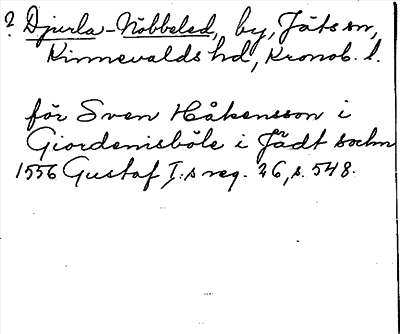 ? Djurla-Nöbbeled, by, Jäts sn,
Kinnevalds hd, Kronob. l.
för Sven Håkensson i
Giordenisböle i Jädt sochn
1556 Gustaf I:s reg. 26, s. 548.